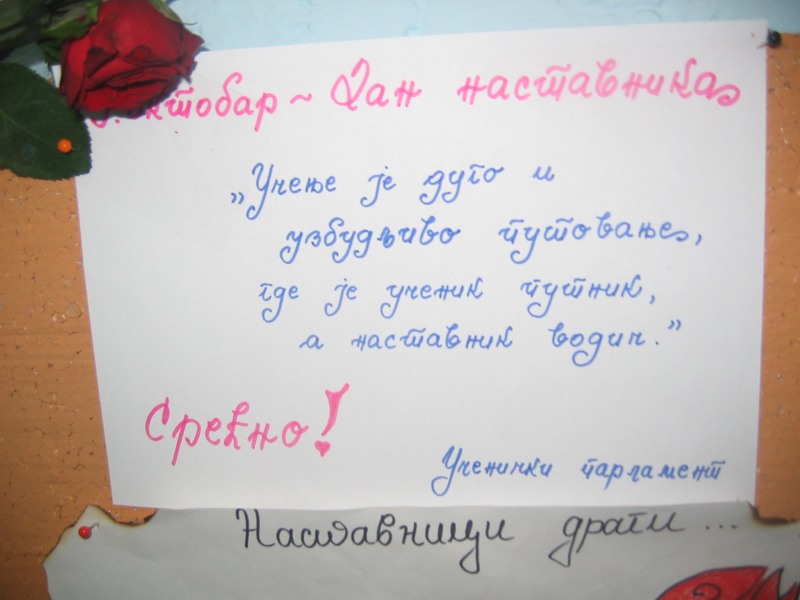 октобар ~ Дан наставника
„Учење је дуго и
узбудљиво путовање,
где је ученик путник,
а наставник водич.”
Срећно!
Ученички парламент
Наставници драги...